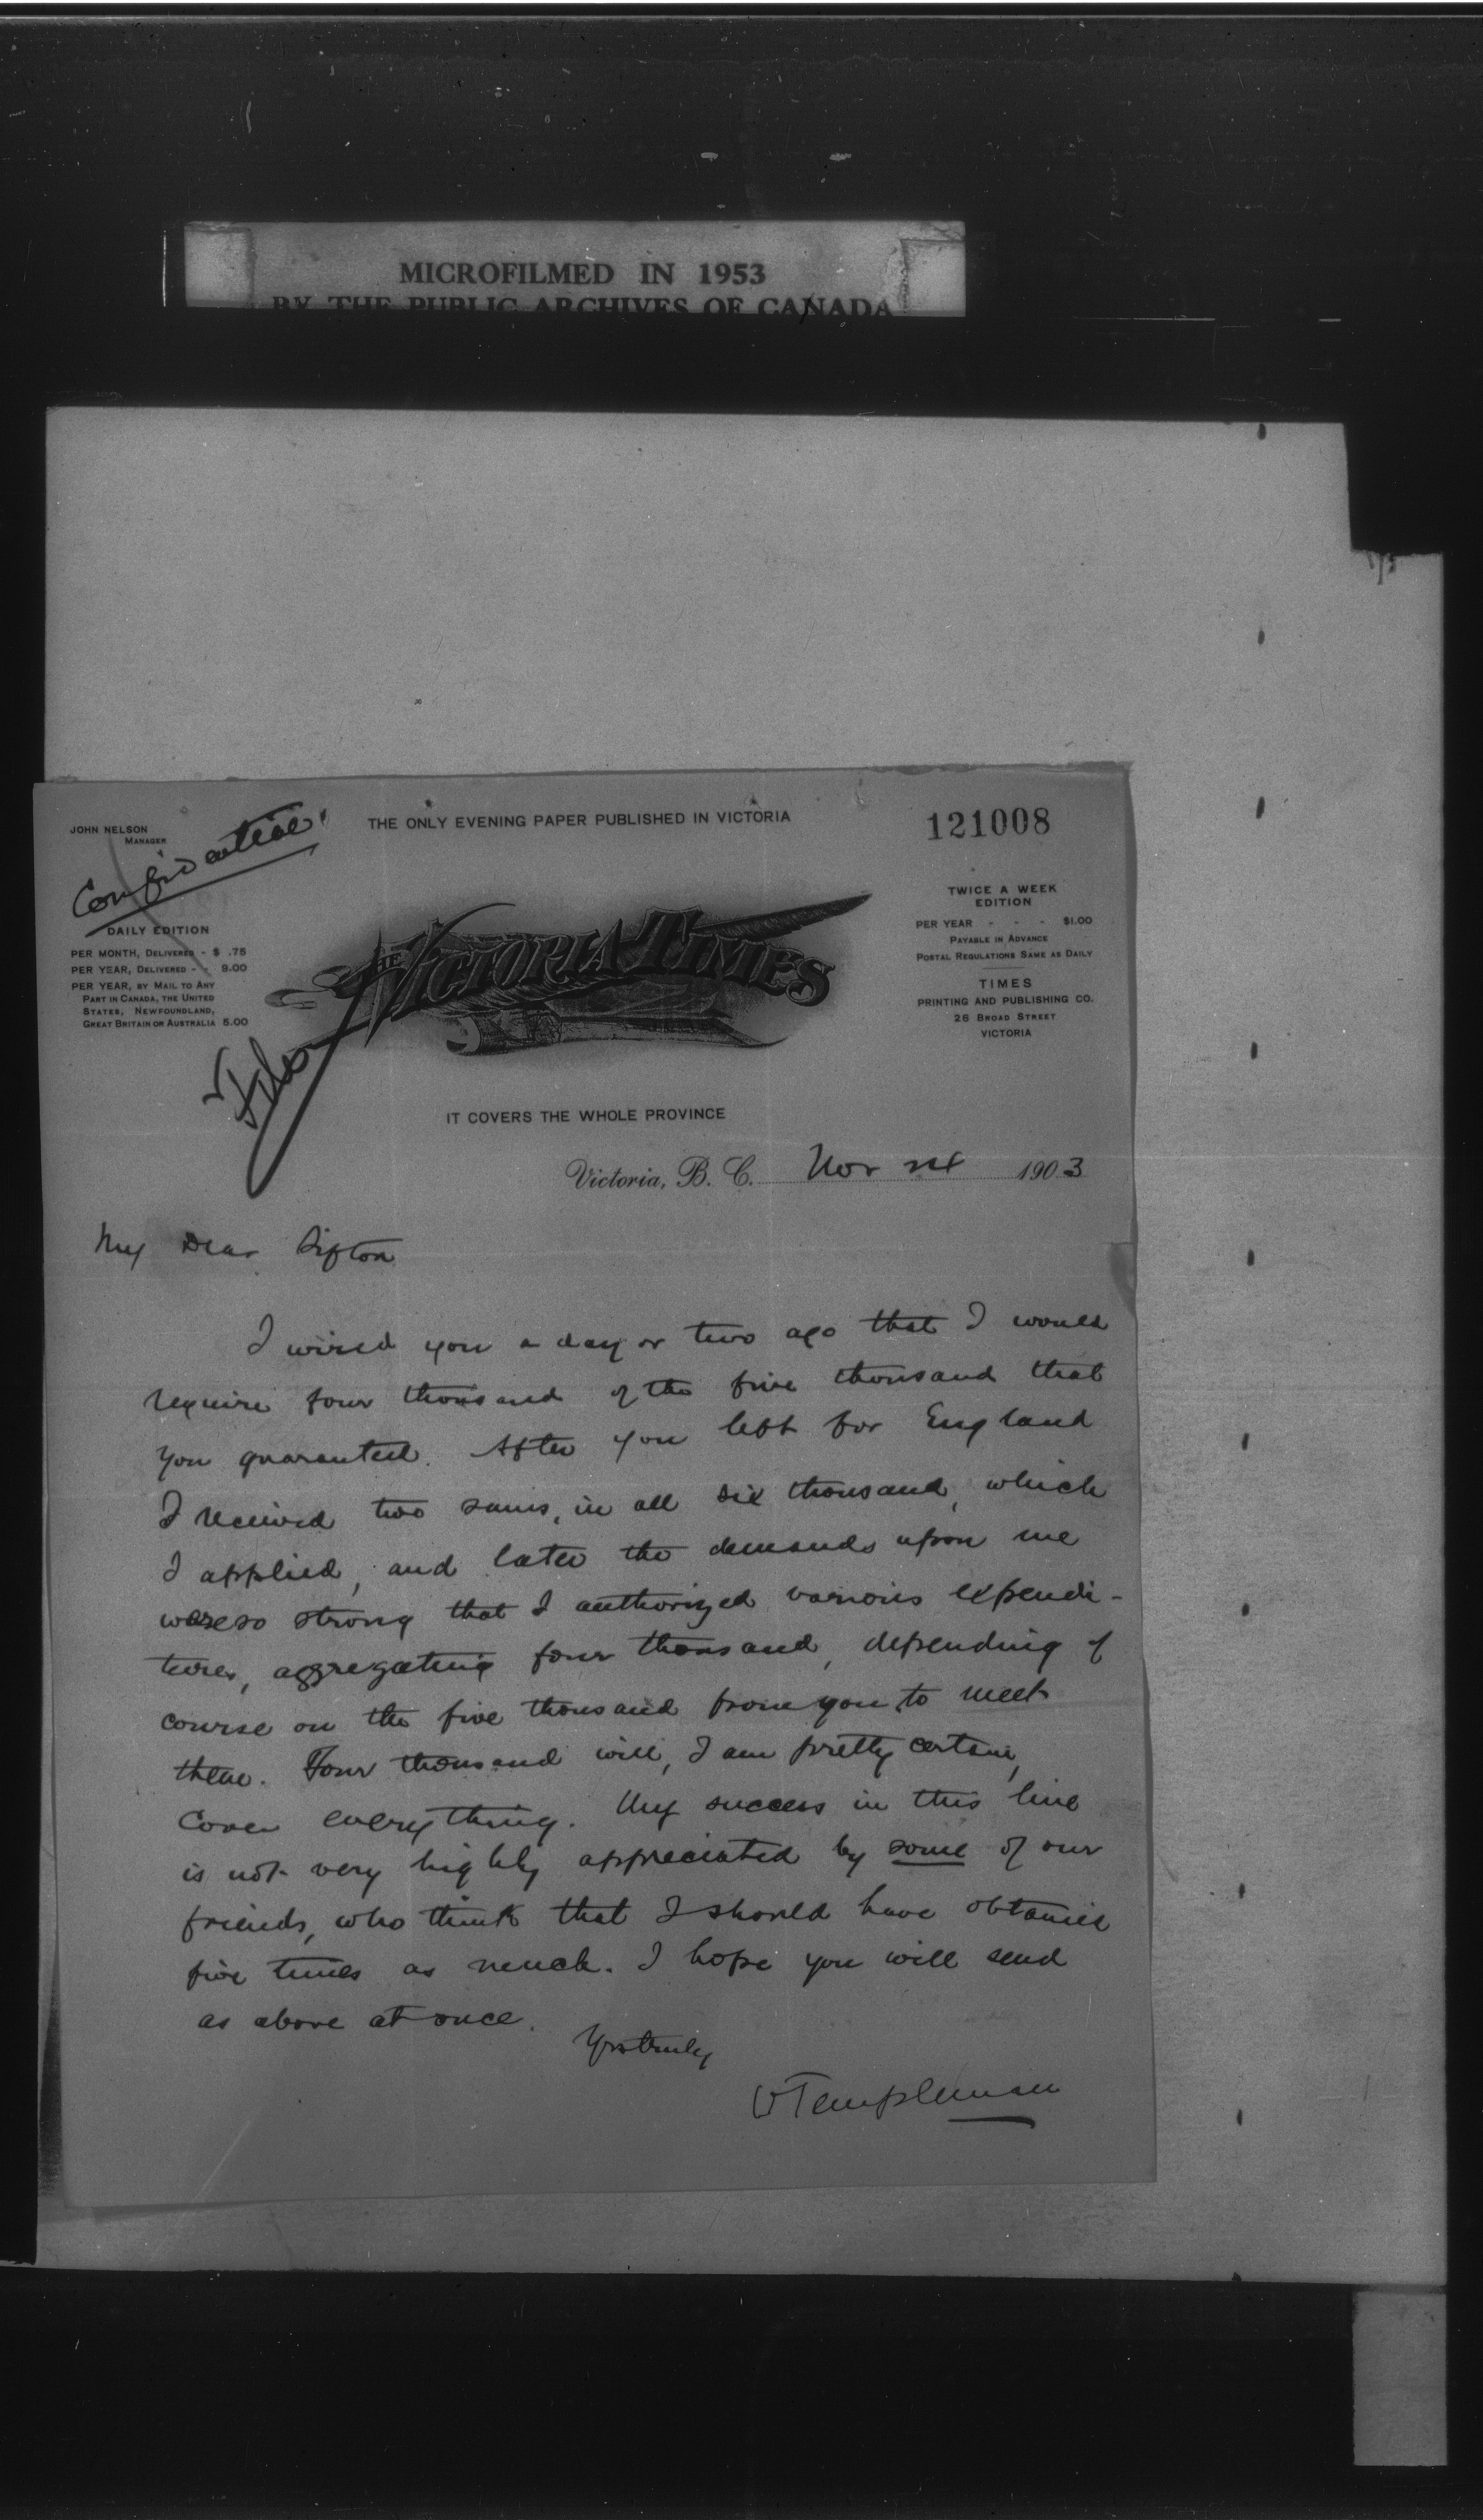 MICROFILMED IN 1953
BY THE PUBLIC ARCHIVES OF CANADA
JOHN NELSON
MANAGER
Confidential
THE ONLY EVENING PAPER PUBLISHED IN VICTORIA
121008
DAILY EDITION
PER MONTH, DELIVERED - $ .75
PER YEAR, DELIVERED - - 9.00
PER YEAR, BY MAIL TO ANY
PART IN CANADA, THE UNITED
STATES, NEWFOUNDLAND,
GREAT BRITAIN OR AUSTRALIA 5.00
THE VICTORIA TIMES
TWICE A WEEK
EDITION
PER YEAR - - - $1.00
PAYABLE IN ADVANCE
POSTAL REGULATIONS SAME AS DAILY
TIMES
PRINTING AND PUBLISHING CO.
26 BROAD STREET
VICTORIA
IT COVERS THE WHOLE PROVINCE
Victoria, B. C. Nov 1903
My Dear Sifton
I wired you a day or two ago that I would
require four thousand of the five thousand that
you guaranteed. After you left for England
I received two sums, in all six thousand, which
I applied, and later the demands upon me
were so strong that I authorized various expendi-
tures, aggregating four thousand, depending of
course on the five thousand from you to meet
them. Four thousand will, I am pretty certain,
cover everything. My success in this line
is not very highly appreciated by some of our
friends, who think that I should have obtained
five times as much. I hope you will send
as above at once.
Yrs truly
W Templeman